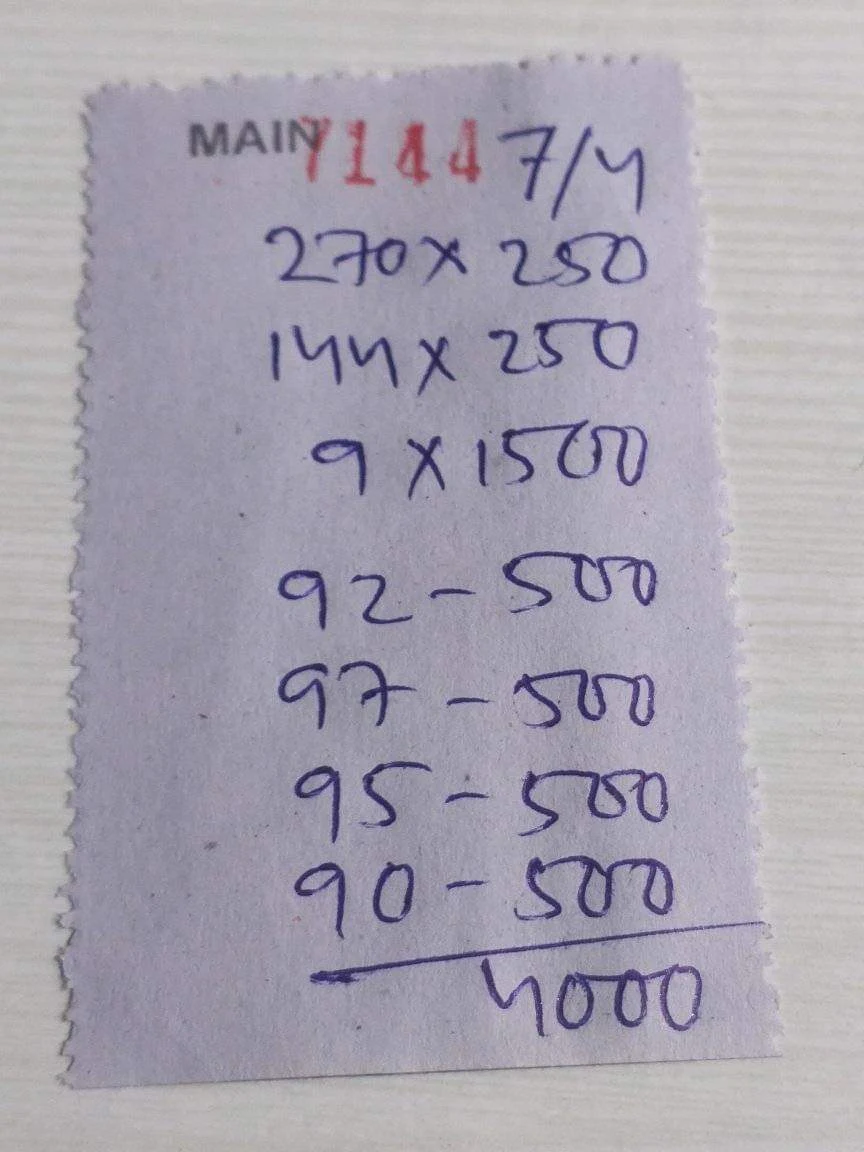 MAIN 7144 7/4
270 x 250
144 x 250
9 x 1500
92 - 500
97 - 500
95 - 500
90 - 500
4000